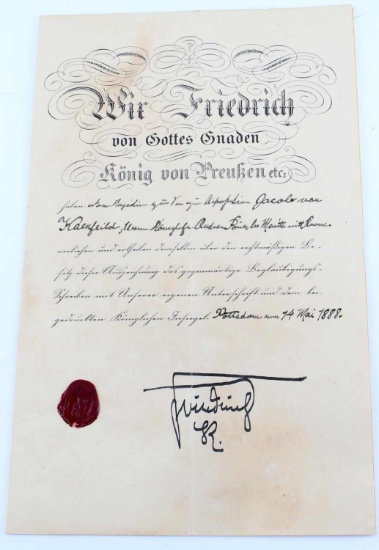 Wir Friedrich
von Gottes Gnaden
König von Preußen etc.
haben dem Jacob von
Unsern Königlichen
verliehen und ertheilen demselben über den rechtmäßigen Be-
sitz dieser Auszeichnung das gegenwärtige Beglaubigungs-
Schreiben mit Unserer eigenen Unterschrift und dem bei-
gedruckten Königlichen Insiegel. Potsdam am 14 Mai 1888.
Friedrich
R.